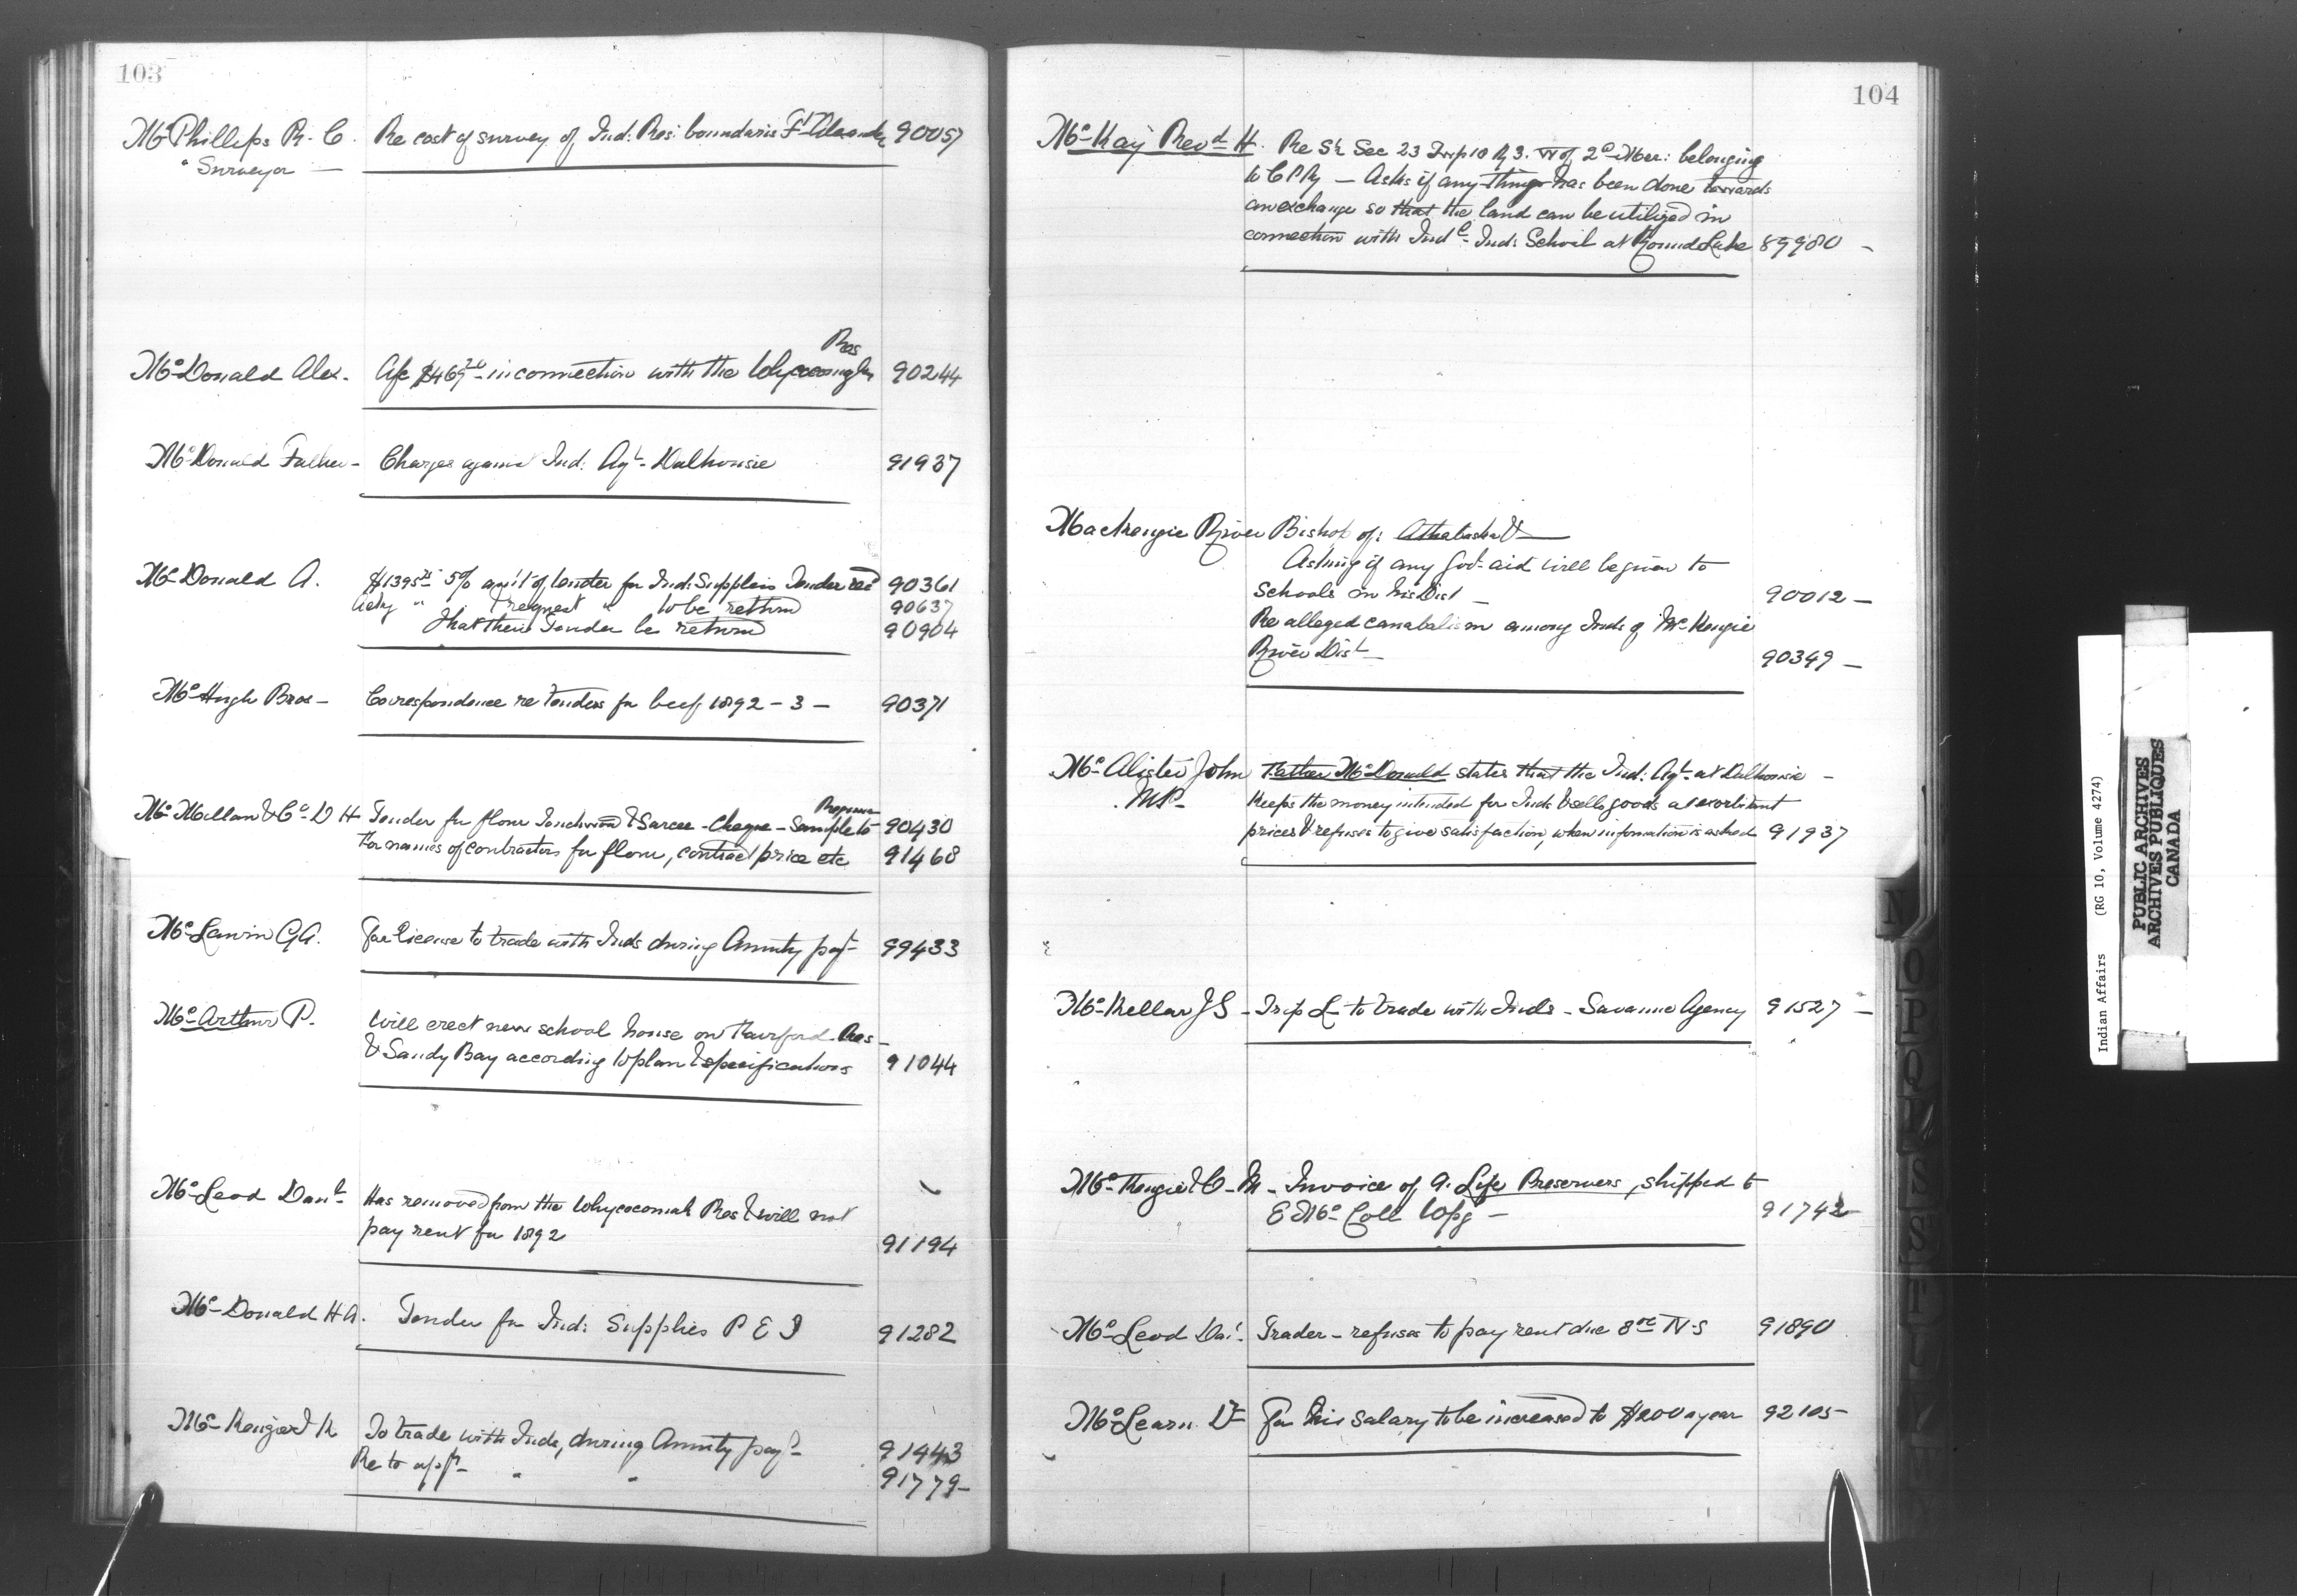 103
McPhillips R. C. Re cost of survey of Ind: Res: boundaries Ft Alexander 90057
" Surveyor —
Res
McDonald Alex. A/c $469 in connection with the Whycocomagh 90244
McDonald Father - Charges against Ind: Agt - Dalhousie 91937
McDonald A. $1395 5% of tender for Ind: Supplies Tender recd 90361
" request " to be returnd 90637
That their Tender be returnd 90904
McHugh Bros - Correspondence re Tenders for beef 1892 - 3 - 90371
McMillan & Co - D H Tender for flour & Sarcee - Cheque - Sample to 90430
For names of contractors for flour, contract price etc 91468
McLawin G A. For license to trade with Inds during Annuity payt 99433
McArthur P. Will erect new school house on Fairford Res -
& Sandy Bay according to plan & specifications 91044
McLeod Danl - Has removed from the Whycocomah Res & will not
pay rent for 1892 91194
McDonald H A. Tender for Ind: Supplies P E I 91282
McKenzie K To trade with Inds, during Annuity payt - 91443
Re to app - " " 91779 -
104
McKay Revd H. Re S½ Sec 23 Twp 10 R 3. W of 2d Mer: belonging
to C P Ry — Asks if any thing has been done towards
an exchange so that the land can be utilized in
connection with Indl - Ind: School at Round Lake 89980 -
Mackenzie River Bishop of: Athabaska &
Asking if any Govt aid will be given to
Schools in his Dist - 90012 —
Re alleged canabalism among Inds of McKenzie
River Dist - 90349 —
McAlister John Father McDonald states that the Ind: Agt - at Dalhousie -
M.P. - Keeps the money intended for Inds & sells goods at exorbitant
prices & refuses to give satisfaction, when information is asked 91937
McKellar J S - L - to trade with Inds - Savanne Agency 91527 —
McKenzie & C - M - Invoice of 9. Life Preservers, shipped to
E McColl Wpg - 91742 -
McLeod Dal. Trader - refuses to pay rent due 8 N S 91890
McLearn Dr For his salary to be increased to $200 a year 92105 -
N
O
P
Indian Affairs (RG 10, Volume 4274)
PUBLIC ARCHIVES
ARCHIVES PUBLIQUES
CANADA